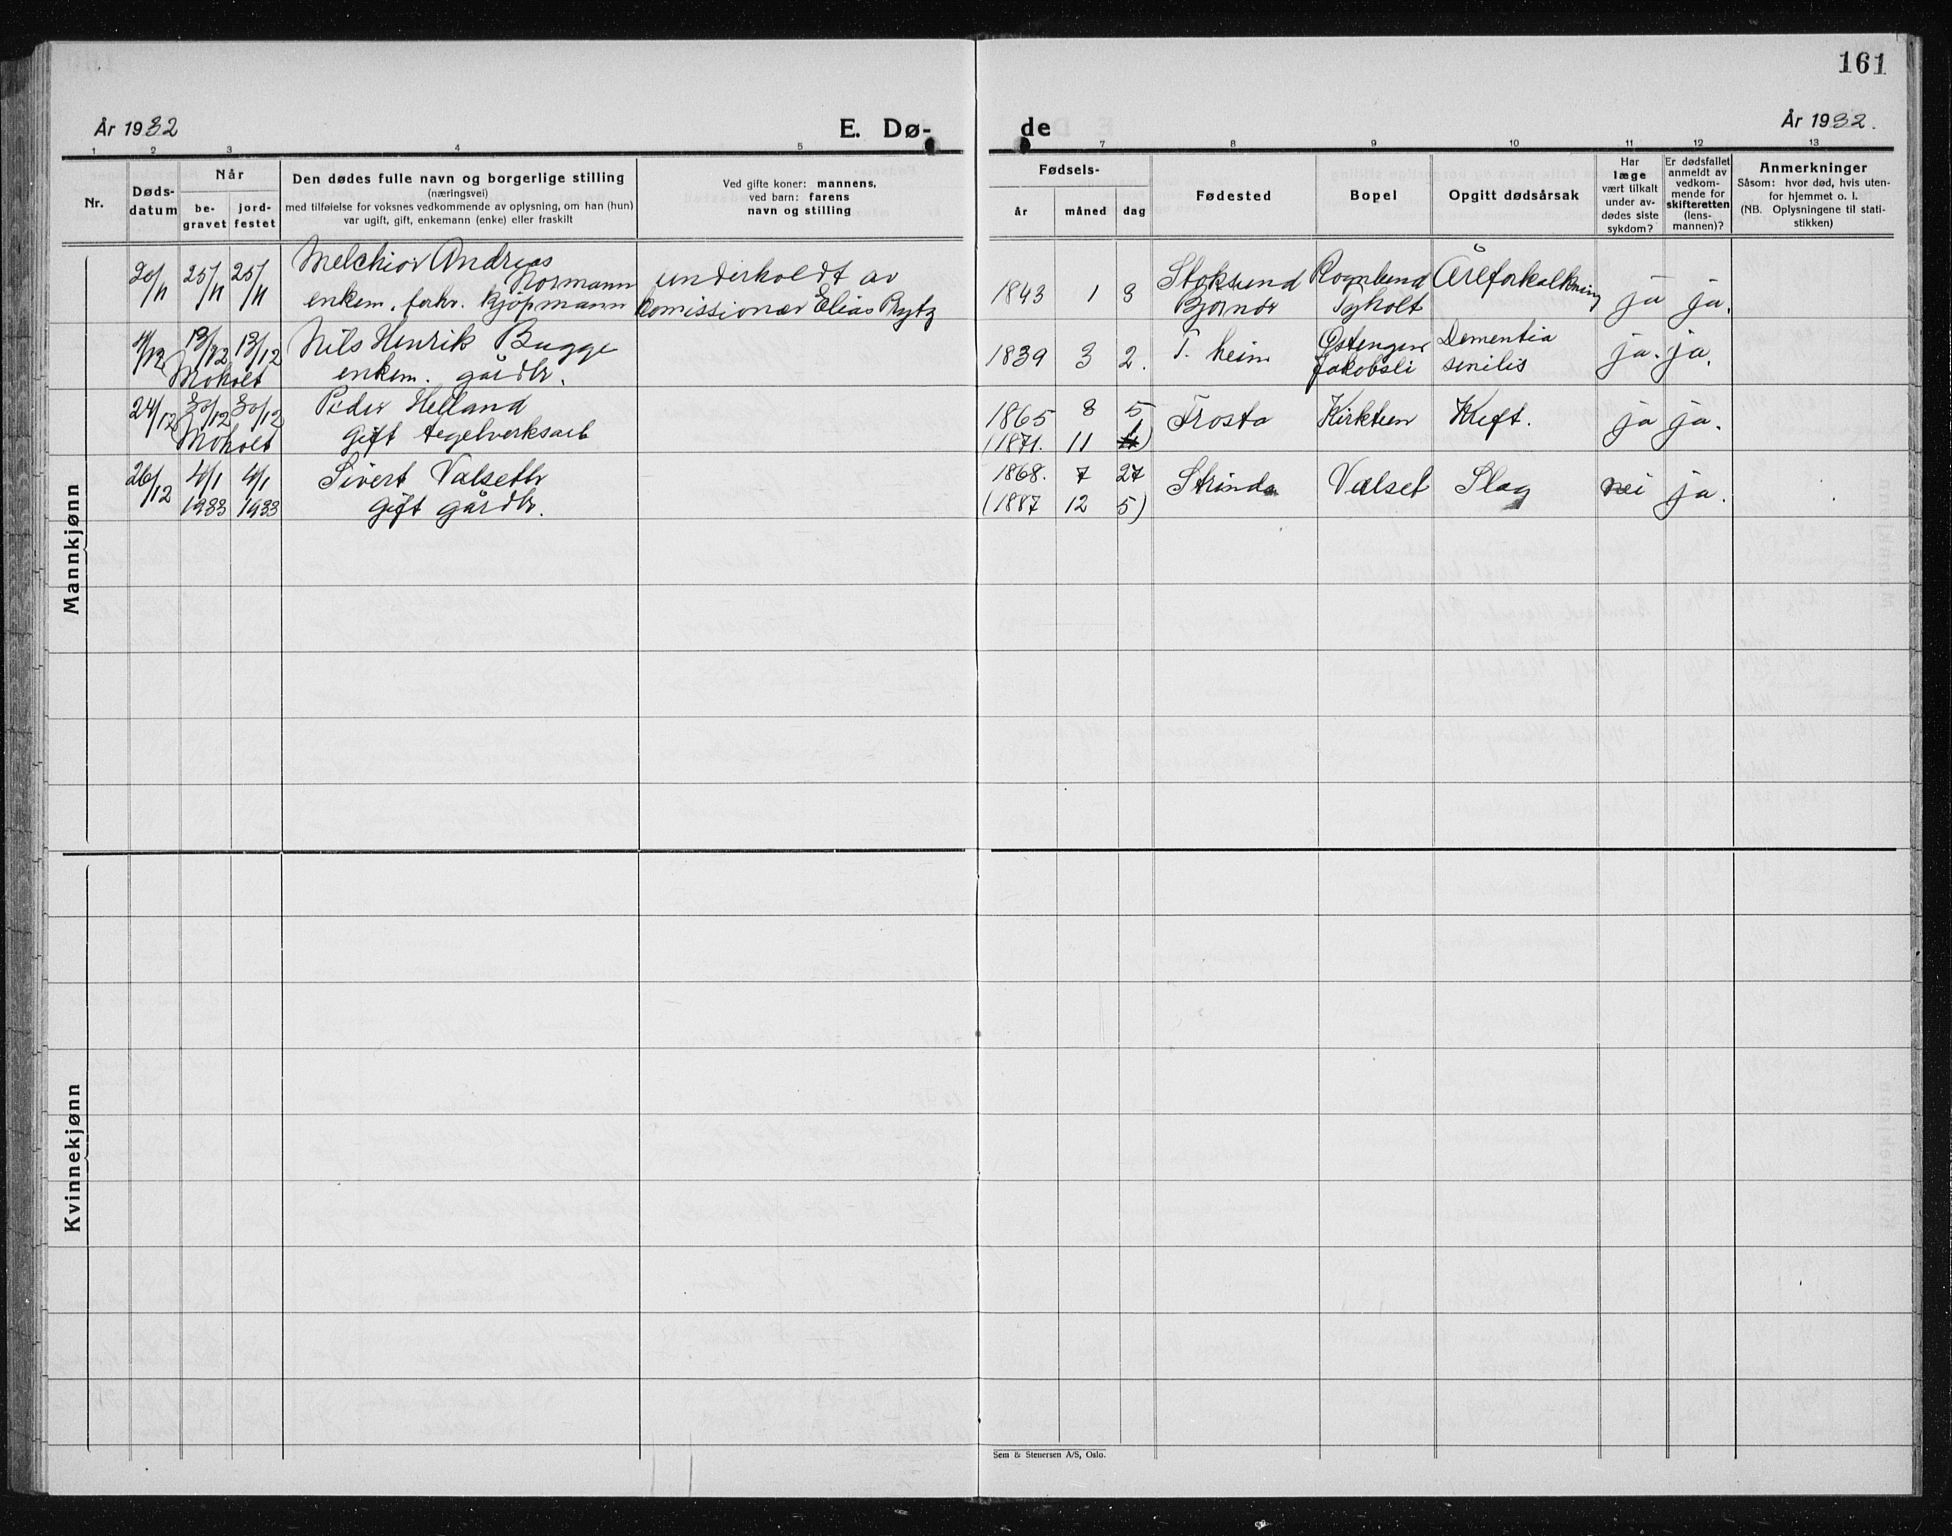 161
År 1932
E. Dø-
de
År 1932.
1 2 3 4 5 7 8 9 10 11 12 13
Nr.
Døds-
datum
Når
be-
gravet
jord-
festet
Den dødes fulle navn og borgerlige stilling
(næringsvei)
med tilføielse for voksnes vedkommende av oplysning, om han (hun)
var ugift, gift, enkemann (enke) eller fraskilt
Ved gifte koner: mannens,
ved barn: farens
navn og stilling
Fødsels-
år
måned
dag
Fødested
Bopel
Opgitt dødsårsak
Har
læge
vært tilkalt
under av-
dødes siste
sykdom?
Er dødsfallet
anmeldt av
vedkom-
mende for
skifteretten
(lens-
mannen)?
Anmerkninger
Såsom: hvor død, hvis uten-
for hjemmet o. l.
(NB. Oplysningene til stati-
stikken)
Mannkjønn
20/11 25/11 25/11 Melchior Andreas
Normann
enkem. forhv. kjøpmann
underholdt av
komissionær Elias Rytz
1843 1 3 Stoksund
Bjørnør
Tyholt
Åreforkalkning ja ja.
11/12 13/12 13/12 Nils Henrik Bugge
Moholt enkem. gårdbr.
1839 3 2. T. heim Østengen
Jakobsli
Dementia
senilis
ja. ja.
24/12 30/12 30/12 Peder Helland
Moholt gift tegelverksarb
1865 8 5 Frosta Kirksteen Kreft. ja ja.
(1871. 11 1)
26/12 4/1 4/1 Sivert Valseth
1933 1933 gift gårdbr.
1868. 7 27 Strinda Valset Slag nei ja.
(1887 12 5)
Kvinnekjønn
Sem & Stenersen A/S, Oslo.